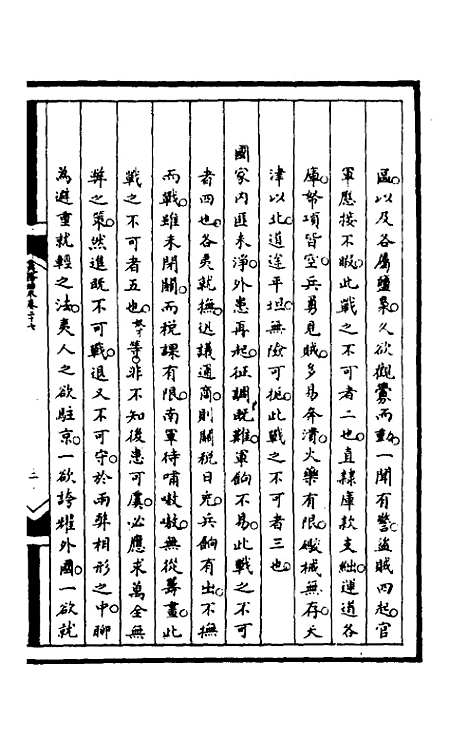 區以及各屬鹽梟久欲觀釁而動一聞有警盜賊四起官
軍應接不暇此戰之不可者二也直隸庫款支絀運道各
庫帑項皆空兵勇見賊多易奔潰火藥有限礮械無存天
津以北道途平坦無險可扼此戰之不可者三也
國家內匪未淨外患再起征調既難軍餉不易此戰之不可
者四也各夷就撫迅議通商則關稅日充兵餉有出不撫
而戰雖未閉關而稅課有限南軍待哺嗷嗷無從籌畫此
戰之不可者五也等非不知後患可虞必應求萬全無
弊之策然進既不可戰退又不可守於兩弊相形之中聊
為避重就輕之法夷人之欲駐京一欲誇耀外國一欲就